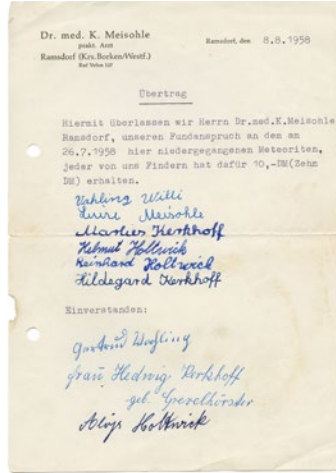 Dr. med. K. Meisohle
prakt. Arzt
Ramsdorf (Krs. Borken/Westf.)
Ruf Velen
Ramsdorf, den 8.8.1958
Übertrag
Hiermit überlassen wir Herrn Dr.med.K.Meisohle
Ramsdorf, unseren Fundanspruch an dem am
26.7.1958 hier niedergegangenen Meteoriten,
jeder von uns Findern hat dafür 10,-DM(Zehn
DM) erhalten.
Willi
Meisohle
Marlies Kerkhoff
Helmut Holtwick
Reinhard Holtwick
Hildegard Kerkhoff
Einverstanden:
Gertrud
Frau Hedwig Kerkhoff
geb.
Aloys Holtwick